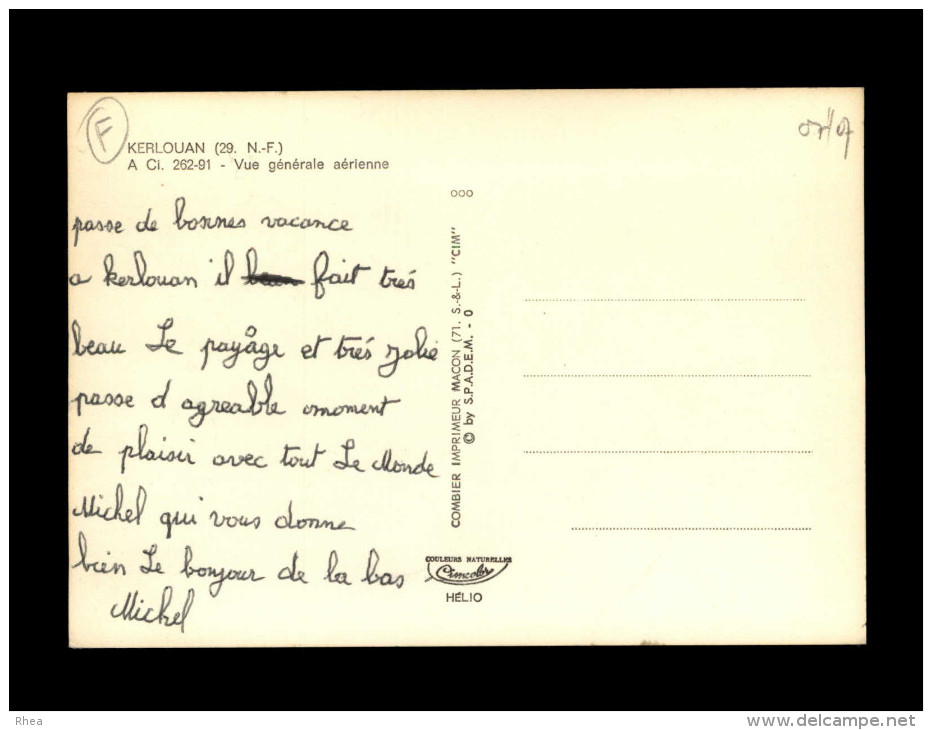 F
KERLOUAN (29. N.-F.)
A Ci. 262-91 - Vue générale aérienne
passe de bonnes vacance
a kerlouan il fait trés
beau Le payâge et trés Jolie
passe d agreable moment
de plaisir avec tout Le Monde
Michel qui vous donne
bien Le bonjour de la bas
Michel
ooo
COMBIER IMPRIMEUR MACON (71. S.-&-L.) "CIM"
© by S.P.A.D.E.M. - O
COULEURS NATURELLES
Cimcolor
HÉLIO
Rhea
www.delcampe.net